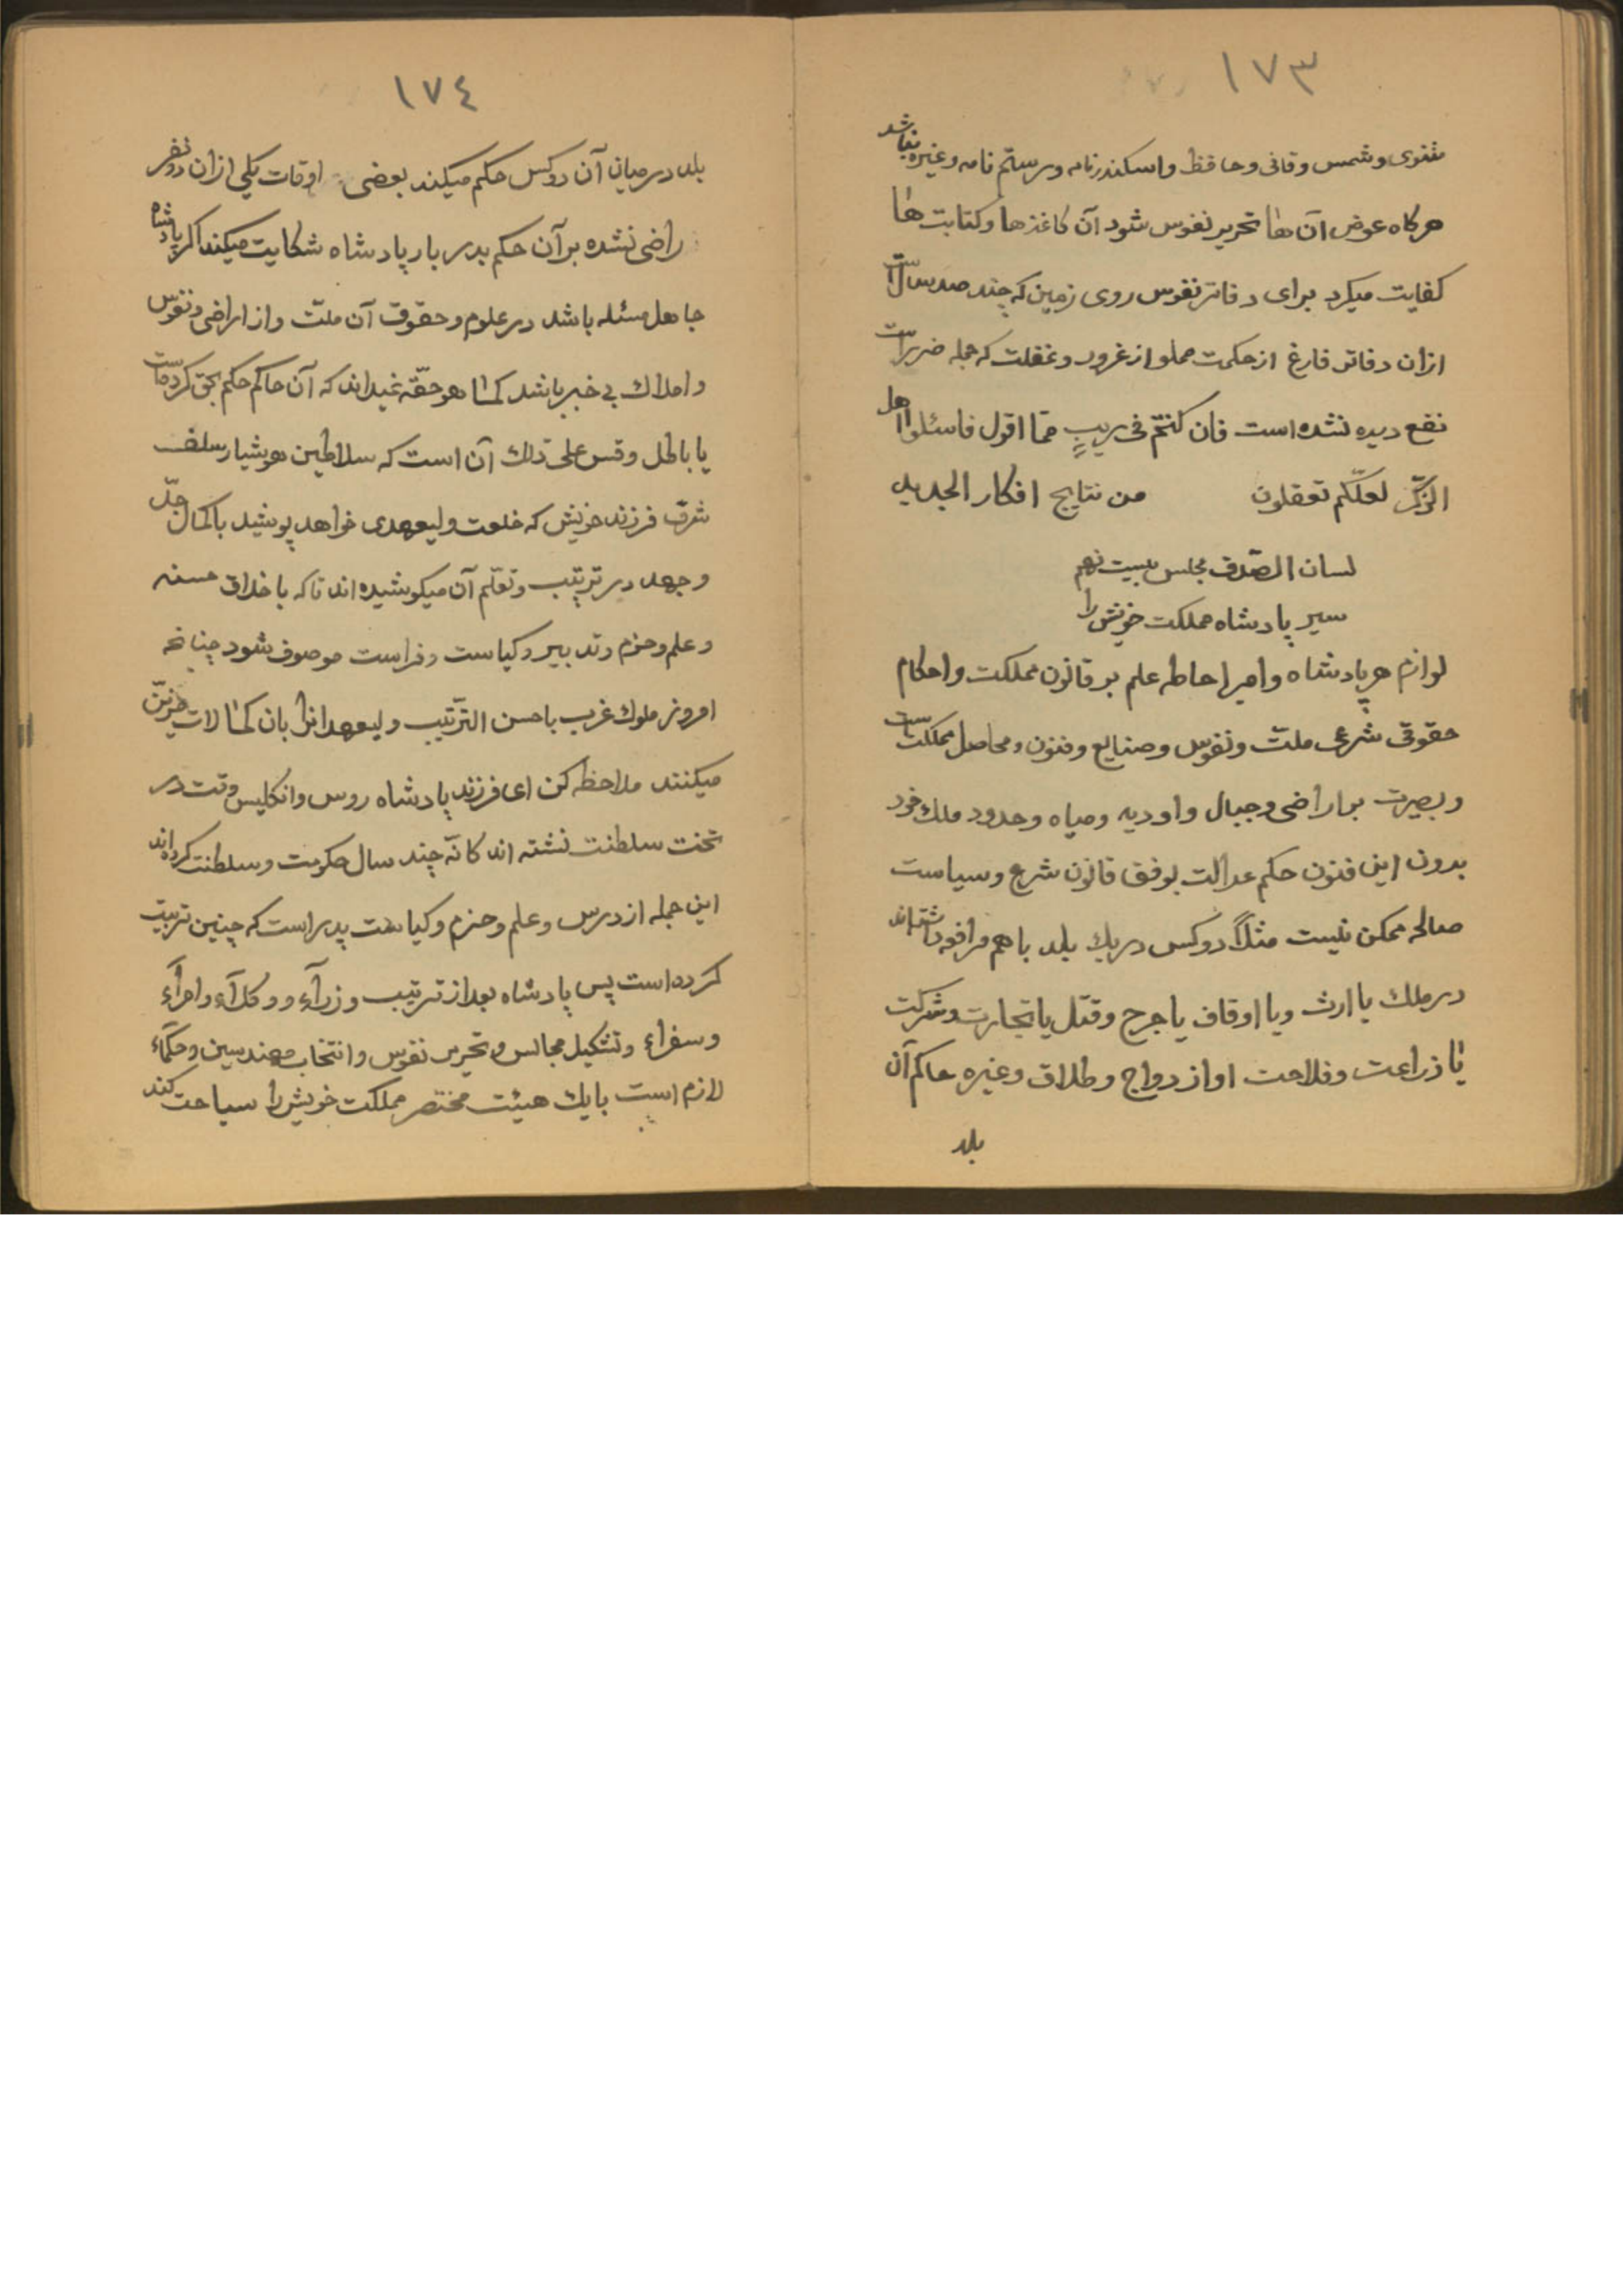 ١٧٣
مثنوی وشمس وقانی وحافظ واسکندرنامه ورستم نامه وغیره نباشد
هرکاه عوض آن ها تحریر نفوس شود آن کاغذها وکتابت ها
کفایت میکرد برای دفاتر نفوس روی زمین که چند صد سال است
ازان دفاتر فارغ از حکمت مملو از غرور وغفلت که جمله ضرر است
نفع دیده نشده است فان کنتم فی ریبٍ ممّا اقول فاسئلوا اهل
الذکر لعلّکم تعقلون من نتایج افکار الجدید
لسان الصّدق مجلس بیست نهم
سیر پادشاه مملکت خویش را
لوازم هر پادشاه وامیر احاطه علم بر قانون مملکت واحکام
حقوقی شرعی ملت ونفوس وصنایع وفنون ومحاصل مملکت است
وبصیرت بر اراضی وجبال واودیه ومیاه وحدود ملك خود
بدون این فنون حکم عدالت بوفق قانون شرع وسیاست
صالحه ممکن نیست مثلاً دوکس در یك بلد با هم مرافعه داشته اند
در ملك یا ارث ویا اوقاف یا جرح وقتل یا تجارت وشرکت
یا زراعت وفلاحت او ازدواج وطلاق وغیره حاکم آن
بلد
١٧٤
بلد درمیان آن دوکس حکم میکند بعضی اوقات یکی ازان دونفر
راضی نشده بر آن حکم بدربار پادشاه شکایت میکند اکر پادشاه
جاهل مسئله باشد در علوم وحقوق آن ملت واز اراضی ونفوس
واملاك بی خبر باشد کما هو حقّه نمیداند که آن حاکم حکم بحق کرده است
یا باطل وقس علی ذلك آن است که سلاطین هوشیار سلف
شرق فرزند خویش که خلعت ولیعهدی خواهد پوشید باکمال جدّ
وجهد در ترتیب وتعلّم آن میکوشیده اند تا که با خلاق حسنه
وعلم وحزم وتدبیر وکیاست وفراست موصوف شود چنانچه
امروز ملوك غرب باحسن التّرتیب ولیعهدانرا بان کمالات مزیّن
میکنند ملاحظه کن ای فرزند پادشاه روس وانکلیس وقت در
تخت سلطنت نشته اند کانّه چند سال حکومت وسلطنت کرده اند
این جمله از درس وعلم وحزم وکیاست پدر است که چنین تربیت
کرده است پس پادشاه بعد از ترتیب وزرآء ووکلآء وامرآء
وسفراء وتشکیل مجالس وتحریر نفوس وانتخاب مهندسین وحکمآء
لازم است بایك هیئت مختصر مملکت خویش را سیاحت کند